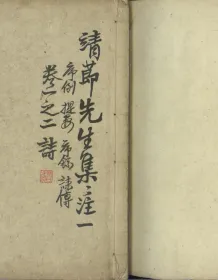 靖節先生集注一
序例 提要 序錄 誄傳
卷一之二 詩